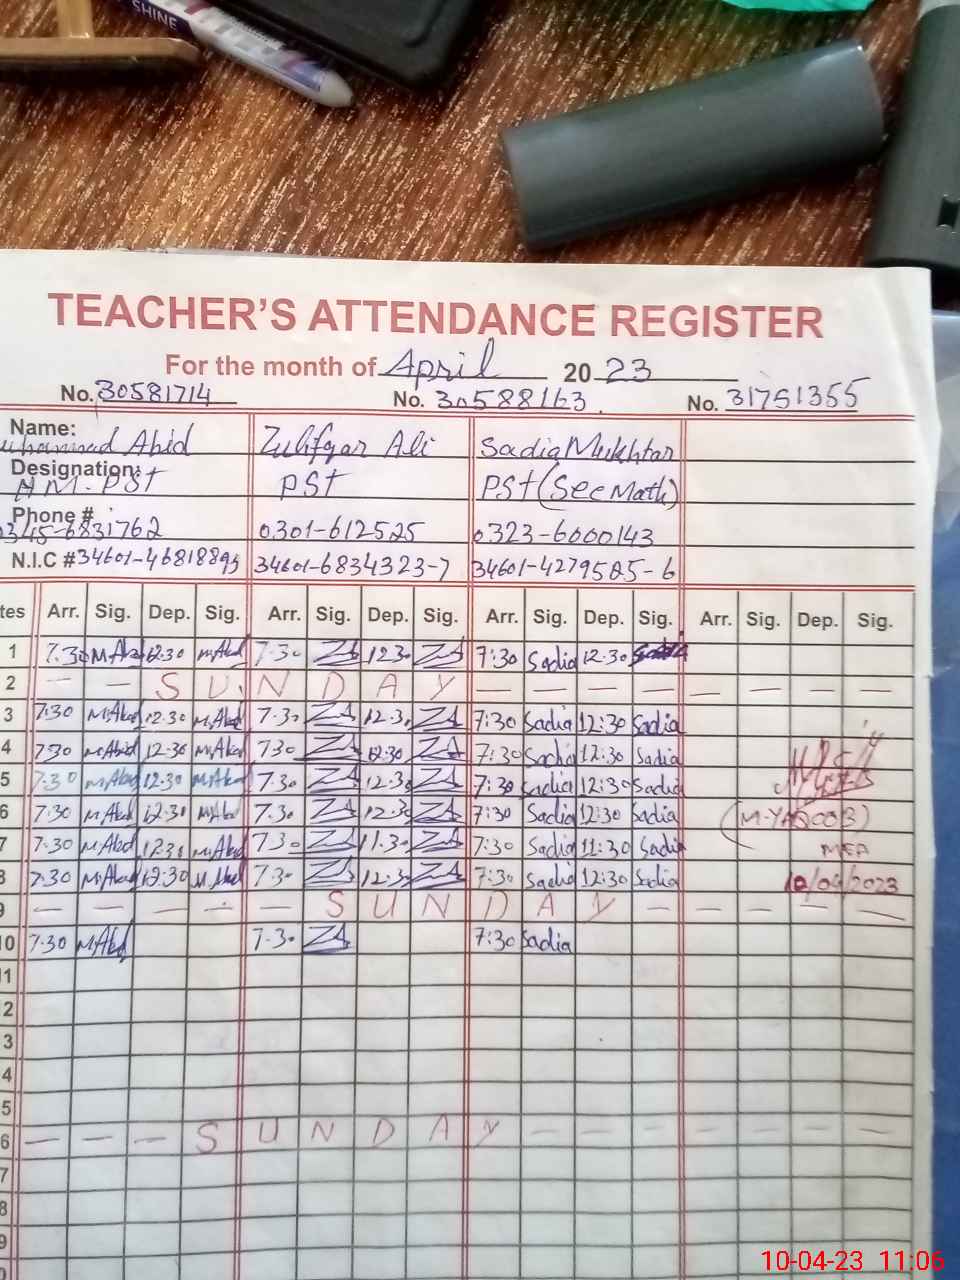 SHINE
TEACHER'S ATTENDANCE REGISTER
For the month of April 2023
No. 30581714 No. 30588163 No. 31751355
Name: Abid Zulifqar Ali Sadia Mukhtar
Designation: HM-PST PST PST (Sec Math)
Phone # 0345-6831762 0301-612525 0323-6000143
N.I.C # 34601-46818895 34601-6834323-7 34601-4279585-6
tes Arr. Sig. Dep. Sig. Arr. Sig. Dep. Sig. Arr. Sig. Dep. Sig. Arr. Sig. Dep. Sig.
1 7.30 M.Abid 12.30 M.Abid 7.30 ZA 12.30 ZA 7:30 Sadia 12.30
2 — — S U N D A Y — — — — — — — —
3 7:30 M.Abid 12.30 M.Abid 7.30 ZA 12.30 ZA 7:30 Sadia 12:30 Sadia
4 7:30 M.Abid 12.30 M.Abid 7.30 ZA 12.30 ZA 7:30 Sadia 12:30 Sadia
5 7.30 M.Abid 12.30 M.Abid 7.30 ZA 12.30 ZA 7:30 Sadia 12:30 Sadia
6 7.30 M.Abid 12.30 M.Abid 7.30 ZA 12.30 ZA 7:30 Sadia 12:30 Sadia (M.YAQOOB)
7 7.30 M.Abid 12.30 M.Abid 7.30 ZA 11.30 ZA 7:30 Sadia 11:30 Sadia MEA
8 7.30 M.Abid 12.30 M.Abid 7.30 ZA 12.30 ZA 7:30 Sadia 12:30 Sadia 10/04/2023
9 — — — — — S U N D A Y — — — — —
10 7.30 M.Abid 7.30 ZA 7:30 Sadia
11
2
3
4
5
6 — — — S U N D A Y — — — — — — —
7
8
9
10-04-23 11:06